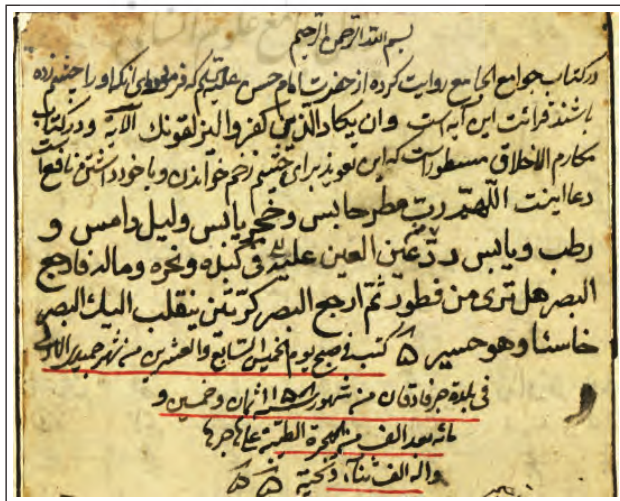 بسم الله الرحمن الرحیم
در کتاب جوامع الجامع روایت کرده از حضرت امام حسن علیه السلم که فرمود دوای آنکه او را چشم زده
باشند قرائت این آیه است وان یکاد الذین کفروا لیزلقونک الآیة و در کتاب
مکارم الاخلاق مسطور است که این تعویذ برای چشم زخم خواندن و با خود داشتن نافع است
دعا اینست اللهم رب مطر حابس وحجر یابس ولیل دامس و
رطب ویابس رد عین العین علیه فی کبده ونحره وماله فارجع
البصر هل تری من فطور ثم ارجع البصر کرتین ینقلب الیک البصر
خاسئا وهو حسیر کتب فی صبح یوم الخمیس السابع والعشرین من شهر جمیدی الاولی
فی بلدة جرفادقان من شهور سنة ۱۱۵۸ ثمان وخمسین و
مائه بعد الف من الهجرة الطیبة علی هاجرها
واله الف ثناء وتحیة